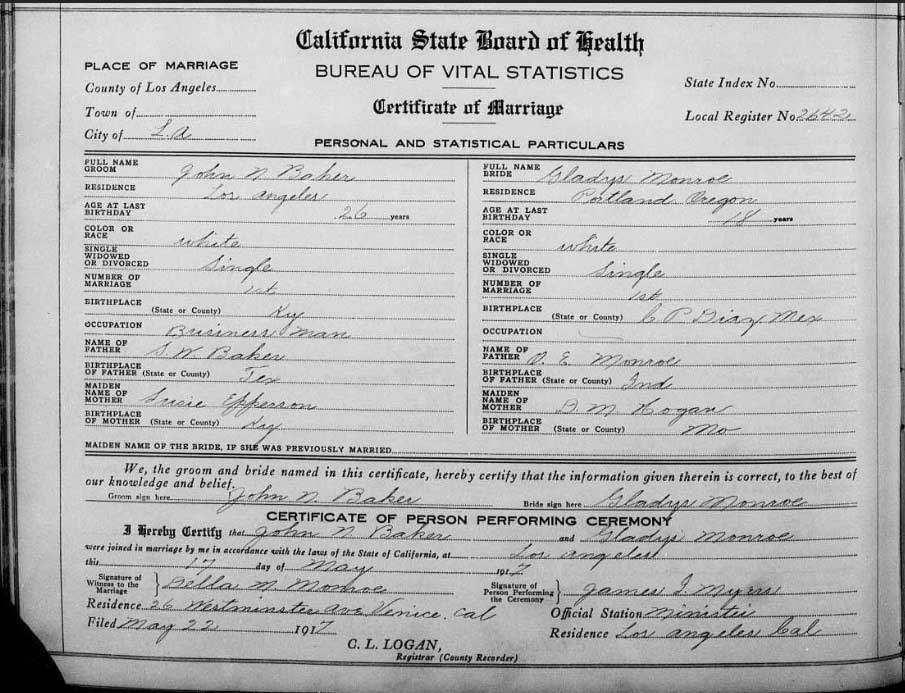 California State Board of Health
PLACE OF MARRIAGE
BUREAU OF VITAL STATISTICS
County of Los Angeles
State Index No.
Town of
Certificate of Marriage
Local Register No. 2642
City of L.A
PERSONAL AND STATISTICAL PARTICULARS
FULL NAME GROOM John N Baker
RESIDENCE Los Angeles
AGE AT LAST BIRTHDAY 26 years
COLOR OR RACE white
SINGLE WIDOWED OR DIVORCED Single
NUMBER OF MARRIAGE 1st
BIRTHPLACE (State or County) Ky
OCCUPATION Business man
NAME OF FATHER S. W. Baker
BIRTHPLACE OF FATHER (State or County) Tex
MAIDEN NAME OF MOTHER Susie Epperson
BIRTHPLACE OF MOTHER (State or County) Ky
FULL NAME BRIDE Gladys Monroe
RESIDENCE Portland, Oregon
AGE AT LAST BIRTHDAY 18 years
COLOR OR RACE white
SINGLE WIDOWED OR DIVORCED Single
NUMBER OF MARRIAGE 1st
BIRTHPLACE (State or County) C P Diaz Mex
OCCUPATION
NAME OF FATHER O. E. Monroe
BIRTHPLACE OF FATHER (State or County) Ind
MAIDEN NAME OF MOTHER D. M. Hogan
BIRTHPLACE OF MOTHER (State or County) Mo
MAIDEN NAME OF THE BRIDE, IF SHE WAS PREVIOUSLY MARRIED
We, the groom and bride named in this certificate, hereby certify that the information given therein is correct, to the best of
our knowledge and belief.
Groom sign here John N. Baker Bride sign here Gladys Monroe
CERTIFICATE OF PERSON PERFORMING CEREMONY
I Hereby Certify that John N Baker and Gladys Monroe
were joined in marriage by me in accordance with the laws of the State of California, at Los Angeles
this 17 day of May 1917
Signature of Witness to the Marriage } Della M Monroe
Signature of Person Performing the Ceremony } James I. Myers
Residence 26 Westminster Ave Venice, Cal
Official Station Minister
Filed May 22 1917
Residence Los Angeles Cal
C. L. LOGAN,
Registrar (County Recorder)